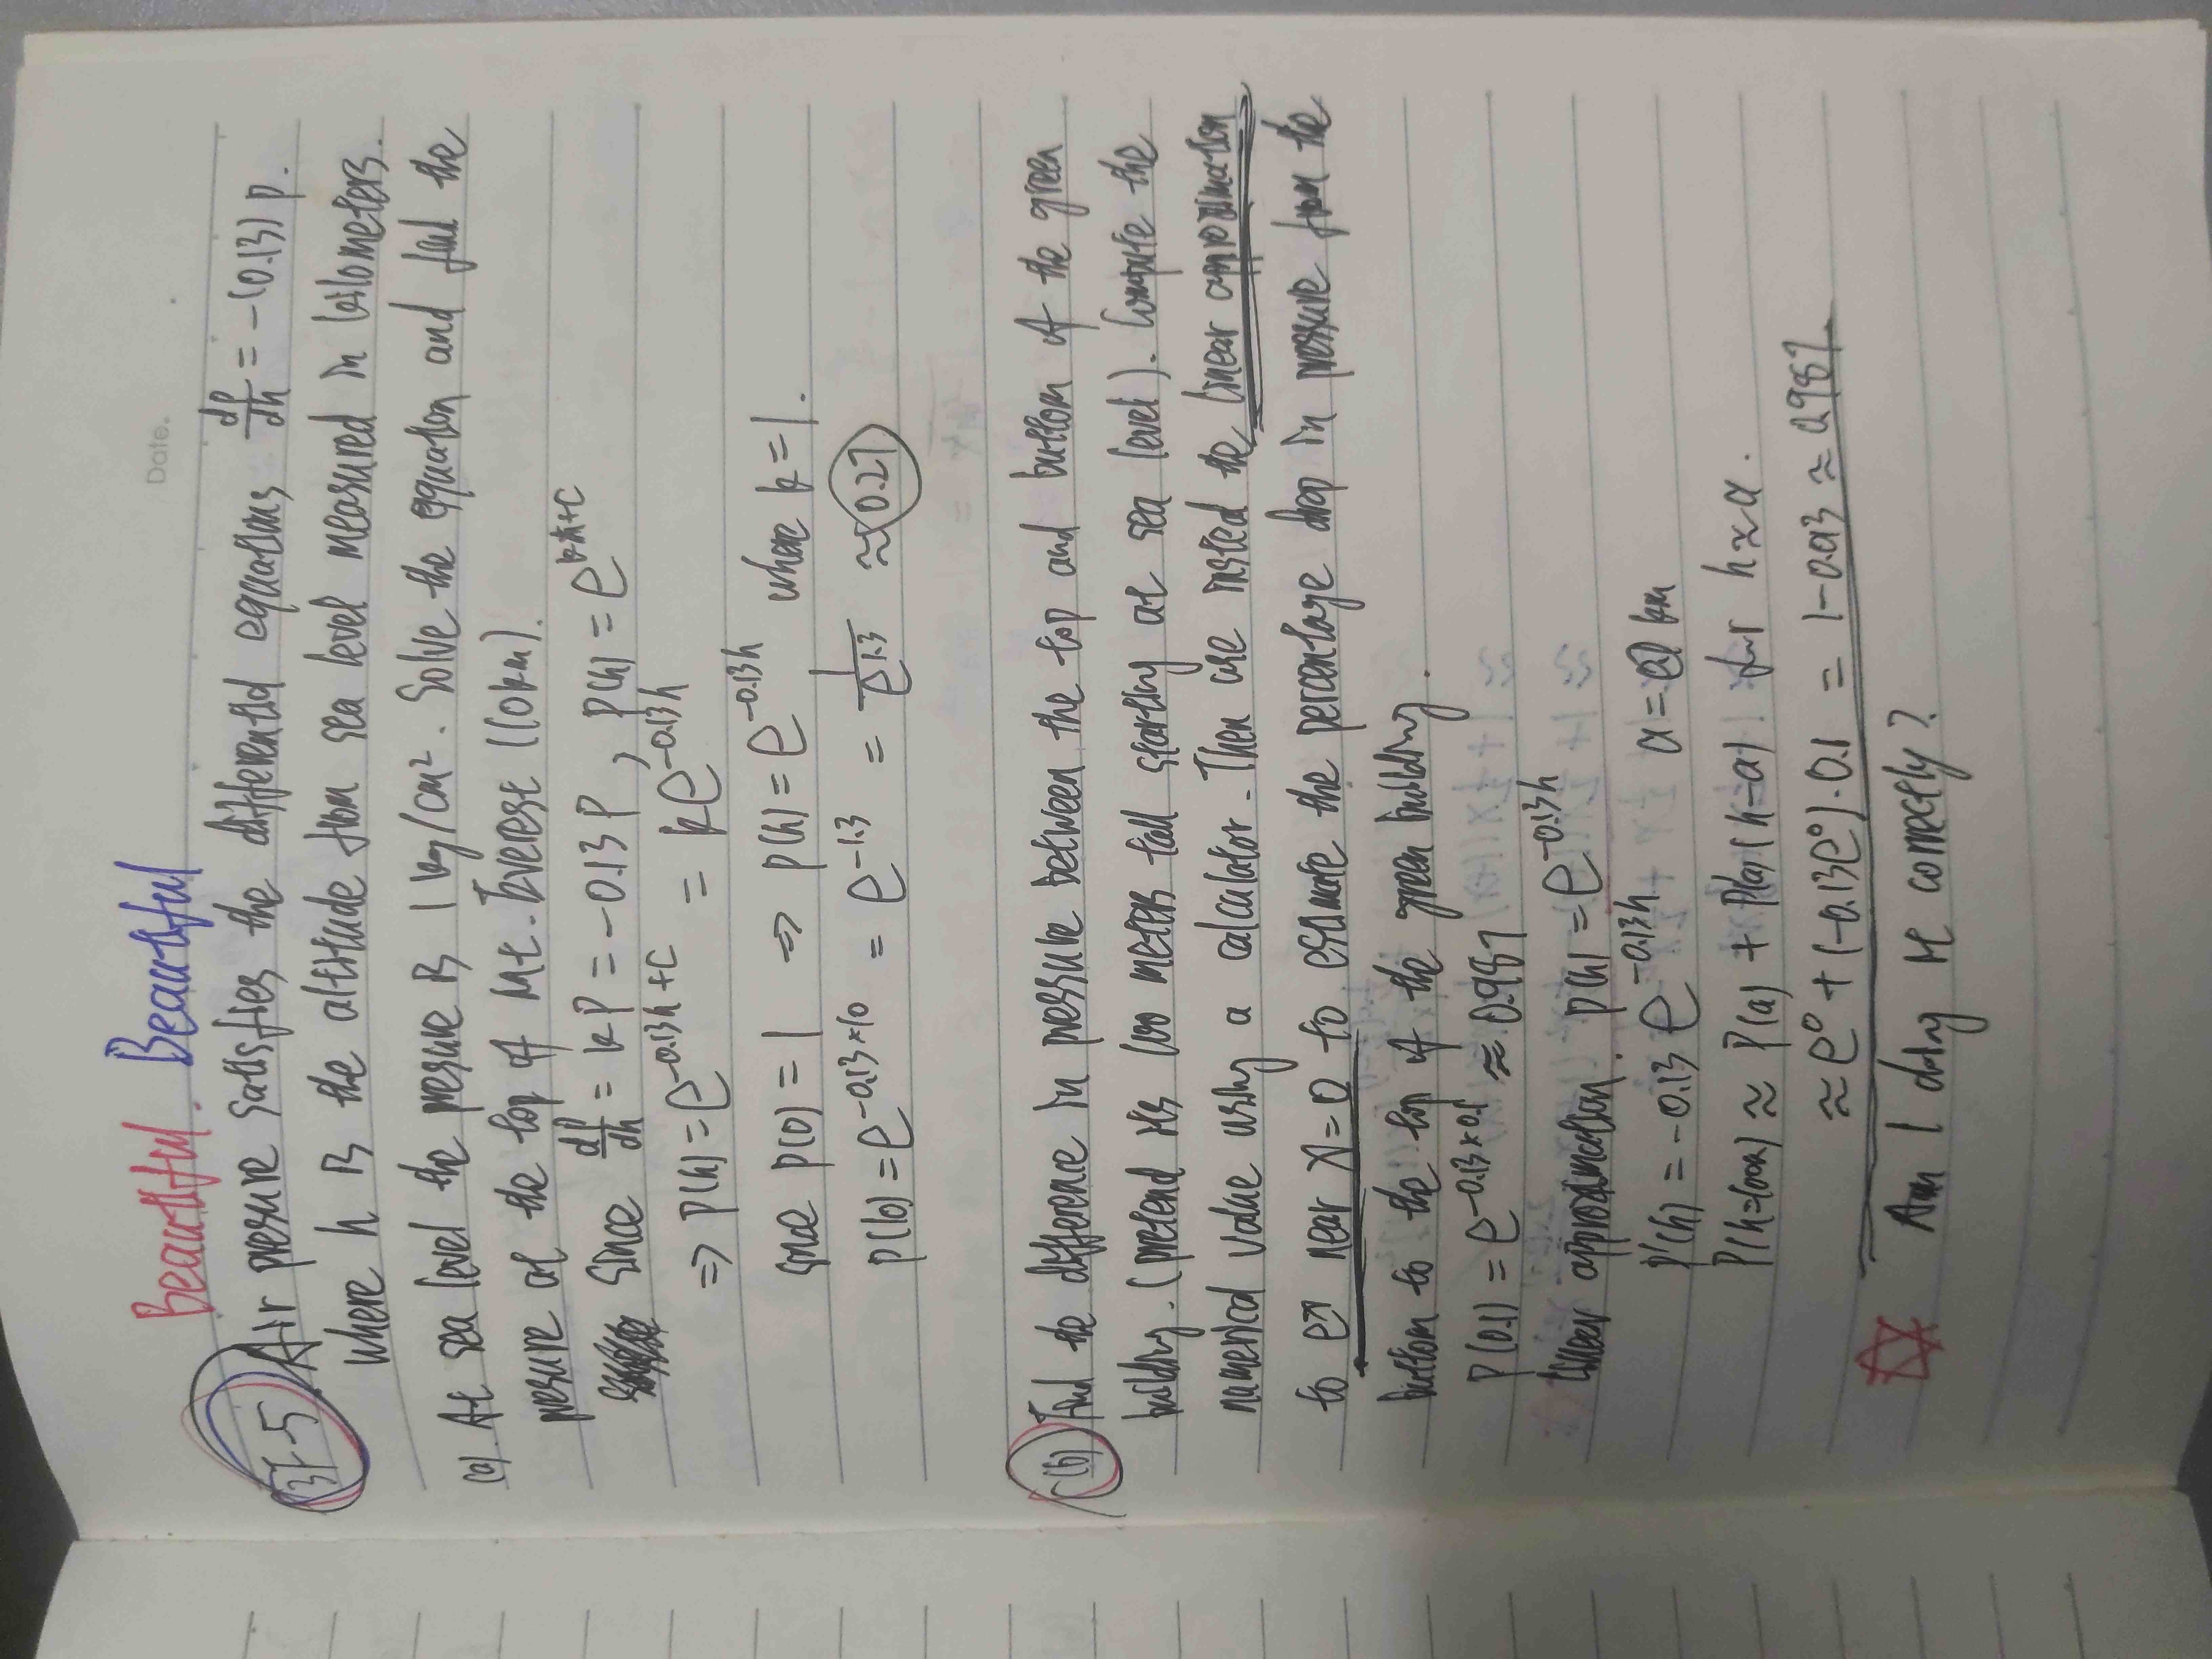 Date.
Beautiful. Beautiful
3F-5 Air pressure satisfies the differential equations dp/dh = -(0.13) p.
where h is the altitude from sea level measured in kilometers.
(a). At sea level the presure is 1 kg/cm². Solve the equation and find the
presure at the top of Mt. Everest (10km).
Since dp/dh = kP = -0.13P, P(h) = e^{kh+C}
=> P(h) = e^{-0.13h+C} = ke^{-0.13h}
since P(0) = 1 => P(h) = e^{-0.13h} where k=1.
P(10) = e^{-0.13×10} = e^{-1.3} = 1/e^{1.3} ≈ 0.27
(b) Find the difference in pressure between the top and buttom of the green
building. (pretend its 100 meters tall starting at sea level). Compute the
numerical value using a calculator. Then use insted the linear approximation
to e^x near x=0 to estimate the percentage drop in pressure from the
buttom to the top of the green building.
P(0.1) = e^{-0.13×0.1} ≈ 0.987
linear approximation. P(h) = e^{-0.13h}
P'(h) = -0.13 e^{-0.13h} a = 0 km
≈ P(a) + P'(a)(h-a) for h≈a.
≈ e^0 + (-0.13e^0)·0.1 = 1-0.013 ≈ 0.987
Am I doing it correctly?